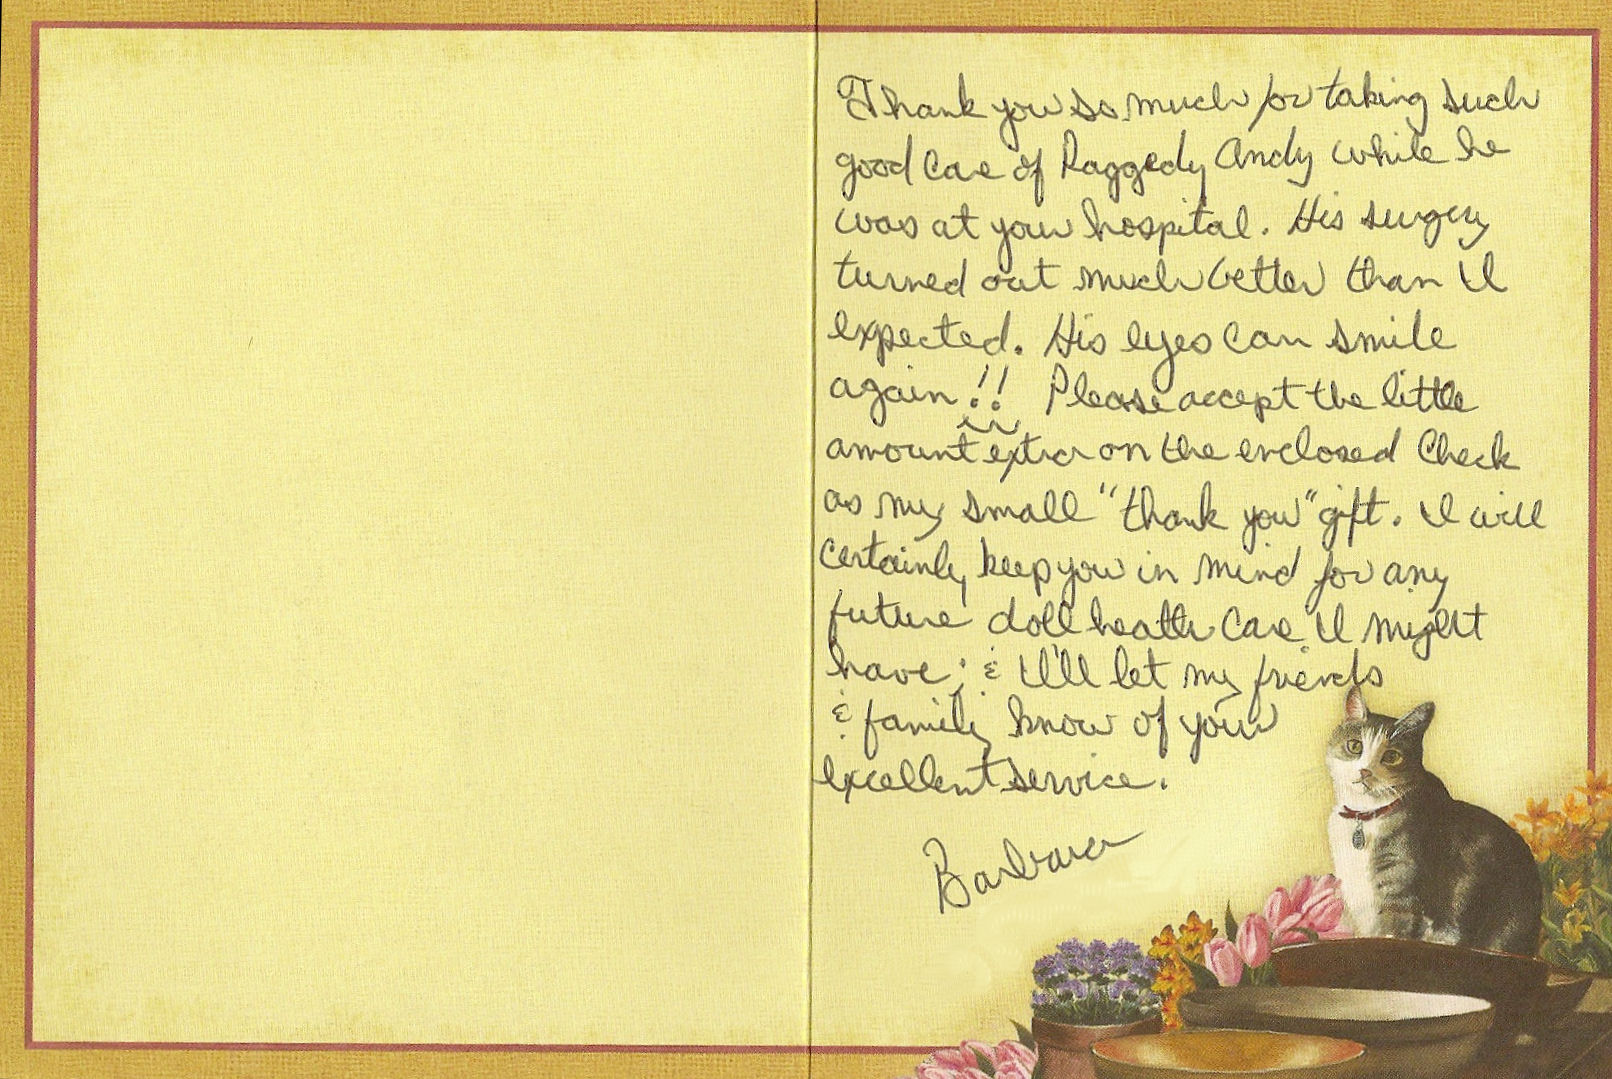 Thank you so much for taking such
good care of Raggedy Andy while he
was at your hospital. His surgery
turned out much better than I
expected. His eyes can smile
again!! Please accept the little
amount extra on the enclosed check
as my small "thank you" gift. I will
certainly keep you in mind for any
future doll health care I might
have; & I'll let my friends
& family know of your
excellent service.
Barbara